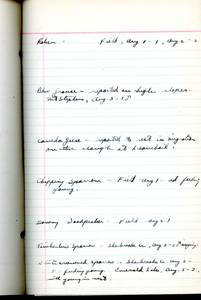 Robin - Field, Aug 1 - 1, Aug 2 - 2
Blue grouse - reported on high slopes
Mt Stephen, Aug 3 - 1
Canada Geese - reported to rest in migration
Chipping Sparrow - Field Aug 1 - ad feeding
young.
Downy Woodpecker - Field Aug 2 - 1
Sparrow - Sherbrooke Cr, Aug 2 -
White crowned Sparrow - Sherbrooke Cr Aug 2 -
5, feeding young. Emerald Lake, Aug 3 - 2,
with young in nest.